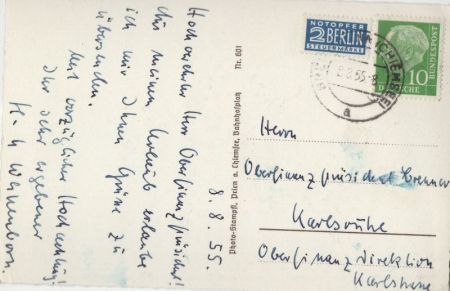 8. 8. 55.
Hochverehrter Herr Oberfinanzpräsident!
Aus meinem Urlaub erlaube
ich mir Ihnen Grüße zu
übersenden.
Mit vorzüglicher Hochachtung!
Ihr sehr ergebener
H.
Photo-Stampfl, Prien a. Chiemsee, Bahnhofplatz Nr. 601
NOTOPFER
2 BERLIN
STEUERMARKE
(CHIEMSEE)
8.55-8
a
10
DEUTSCHE
BUNDESPOST
Herrn
Oberfinanzpräsident
Karlsruhe
Oberfinanzdirektion